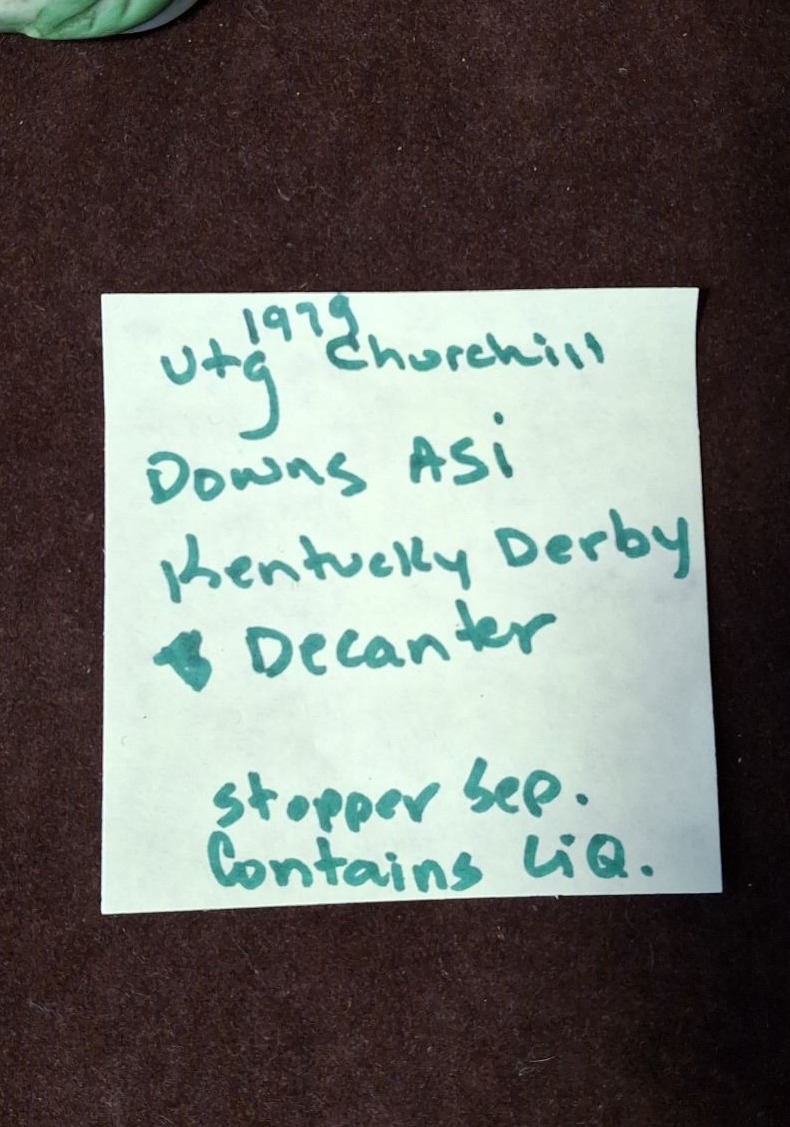 1979
Vtg Churchill
Downs ASi
Kentucky Derby
Decanter
stopper Sep.
Contains LiQ.